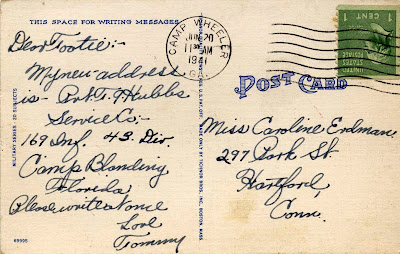 THIS SPACE FOR WRITING MESSAGES
Dear Tootie:-
My new address
is - Pvt. T. J. Hubbs
Service Co:-
169 Inf. 43. Div.
Camp Blanding
Florida
Please write at once
Love
Tommy
69995
MILITARY SERIES - 20 SUBJECTS
CAMP WHEELER
JUN 20
AM
1941
GA.
1 CENT 1
UNITED STATES POSTAGE
POST CARD
Miss Caroline Erdman
297 Park St.
Hartford,
Conn.